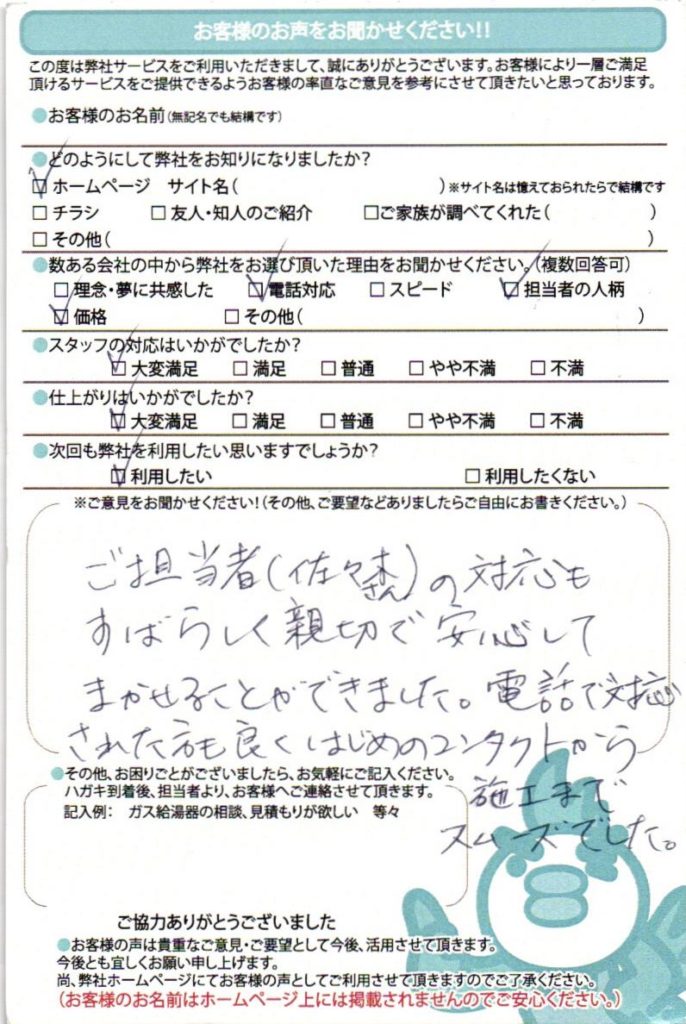 お客様のお声をお聞かせください!!
この度は弊社サービスをご利用いただきまして、誠にありがとうございます。お客様により一層ご満足
頂けるサービスをご提供できるようお客様の率直なご意見を参考にさせて頂きたいと思っております。
●お客様のお名前(無記名でも結構です)
●どのようにして弊社をお知りになりましたか?
☑ホームページ サイト名( )※サイト名は憶えておられたらで結構です
□チラシ □友人・知人のご紹介 □ご家族が調べてくれた( )
□その他( )
●数ある会社の中から弊社をお選び頂いた理由をお聞かせください。(複数回答可)
□理念・夢に共感した ☑電話対応 □スピード ☑担当者の人柄
☑価格 □その他( )
●スタッフの対応はいかがでしたか?
☑大変満足 □満足 □普通 □やや不満 □不満
●仕上がりはいかがでしたか?
☑大変満足 □満足 □普通 □やや不満 □不満
●次回も弊社を利用したい思いますでしょうか?
☑利用したい □利用したくない
※ご意見をお聞かせください!(その他、ご要望などありましたらご自由にお書きください。)
ご担当者(佐々木さん)の対応も
すばらしく親切で安心して
まかせることができました。電話で対応
された方も良くはじめのコンタクトから
施工まで
スムーズでした。
●その他、お困りごとがございましたら、お気軽にご記入ください。
ハガキ到着後、担当者より、お客様へご連絡させて頂きます。
記入例: ガス給湯器の相談、見積もりが欲しい 等々
ご協力ありがとうございました
●お客様の声は貴重なご意見・ご要望として今後、活用させて頂きます。
今後とも宜しくお願い申し上げます。
尚、弊社ホームページにてお客様の声としてご利用させて頂きますのでご了承ください。
(お客様のお名前はホームページ上には掲載されませんのでご安心ください。)